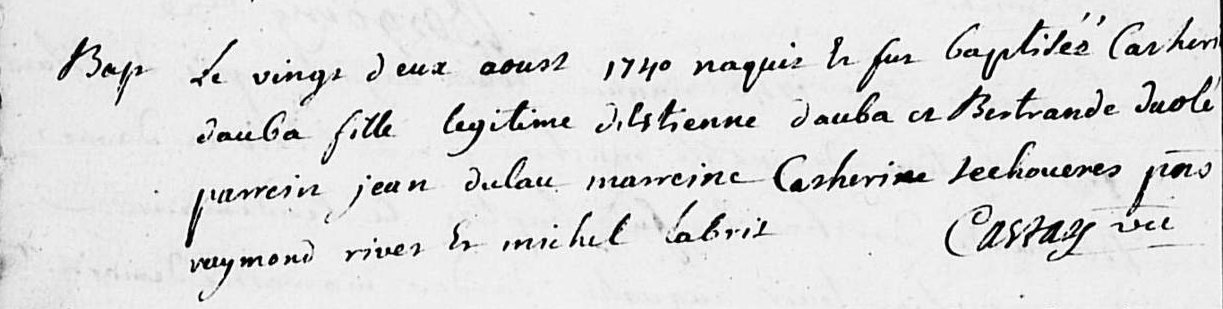 Bap Le vingt deux aoust 1740 naquit et fut baptiséé Catheri
dauba fille legitime d'estienne dauba et Bertrande
parrein jean dulau marreine Catherine pns
raymond rives et michel labrit vic